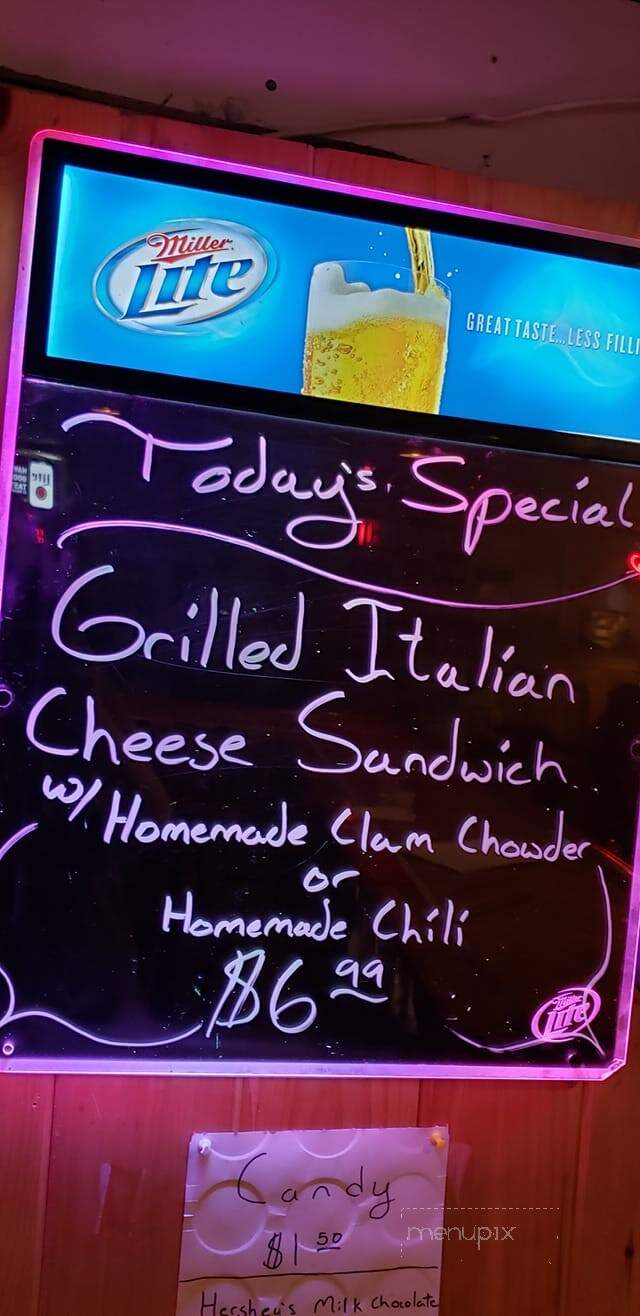 Miller
Lite
GREAT TASTE...LESS FILLI
Today's Special
Grilled Italian
Cheese Sandwich
w/ Homemade Clam Chowder
or
Homemade Chili
$6 99
Miller
Lite
Candy
$1 50
menupix
Hershey's Milk Chocolate